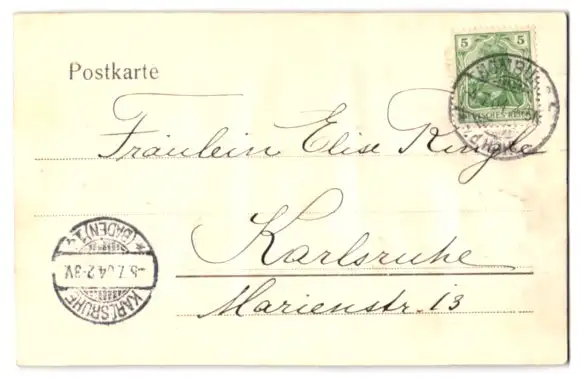 Postkarte
5 5
DEUTSCHES REICH
HAMBURG
Fräulein Elise Ringle
Karlsruhe
Marienstr. 13
KARLSRUHE
(BADEN) 1
-5.7.04.2-3V.